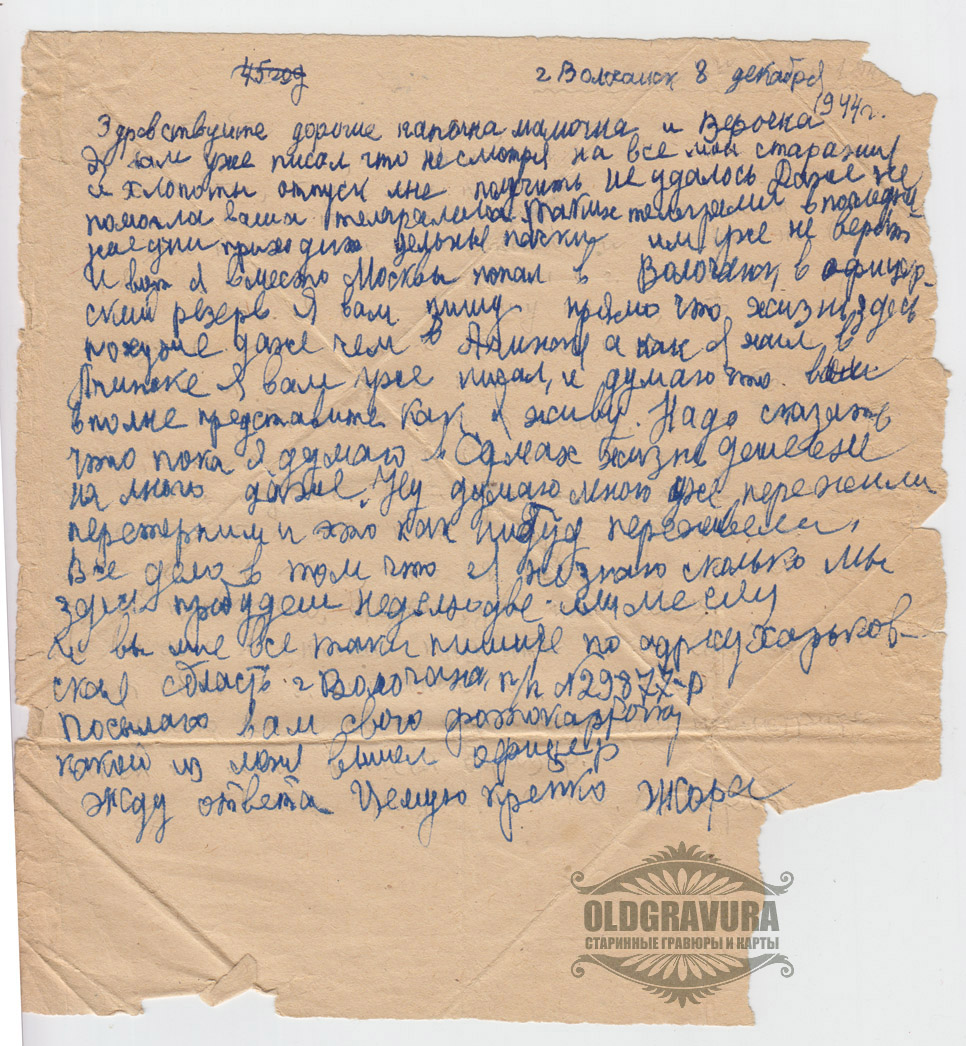 45 год
г Волчанск 8 декабря
1944 г.
Здравствуйте дорогие папочка мамочка и Верочка
Я вам уже писал что несмотря на все мои старания
и хлопоты отпуск мне получить не удалось Даже не
помогла ваша телеграмма. Таких телеграмм в последни
нае дни приходит целые пачки им уже не верят
И вот я вместо Москвы попал в Волочанск, в офицер-
ский резерв. Я вам пишу прямо что жизнь здесь
похуже даже чем в а как я жил в
я вам уже писал, и думаю что вы
вполне представите как я живу. Надо сказать
что пока я думаю в жизнь дешевле
на много даже. Ну думаю много уже пережили
перетерпим и это как нибуд
Все дело в том что я не знаю сколько мы
здесь пробудем неделю две или месяц
Но вы мне все таки пишите по адресу Харьков-
ская область г Волочанск, п/п №29877-Р
Посылаю вам свою фотокарточку
какой из меня вышел офицер
Жду ответа Целую крепко Жора
OLDGRAVURA
СТАРИННЫЕ ГРАВЮРЫ И КАРТЫ